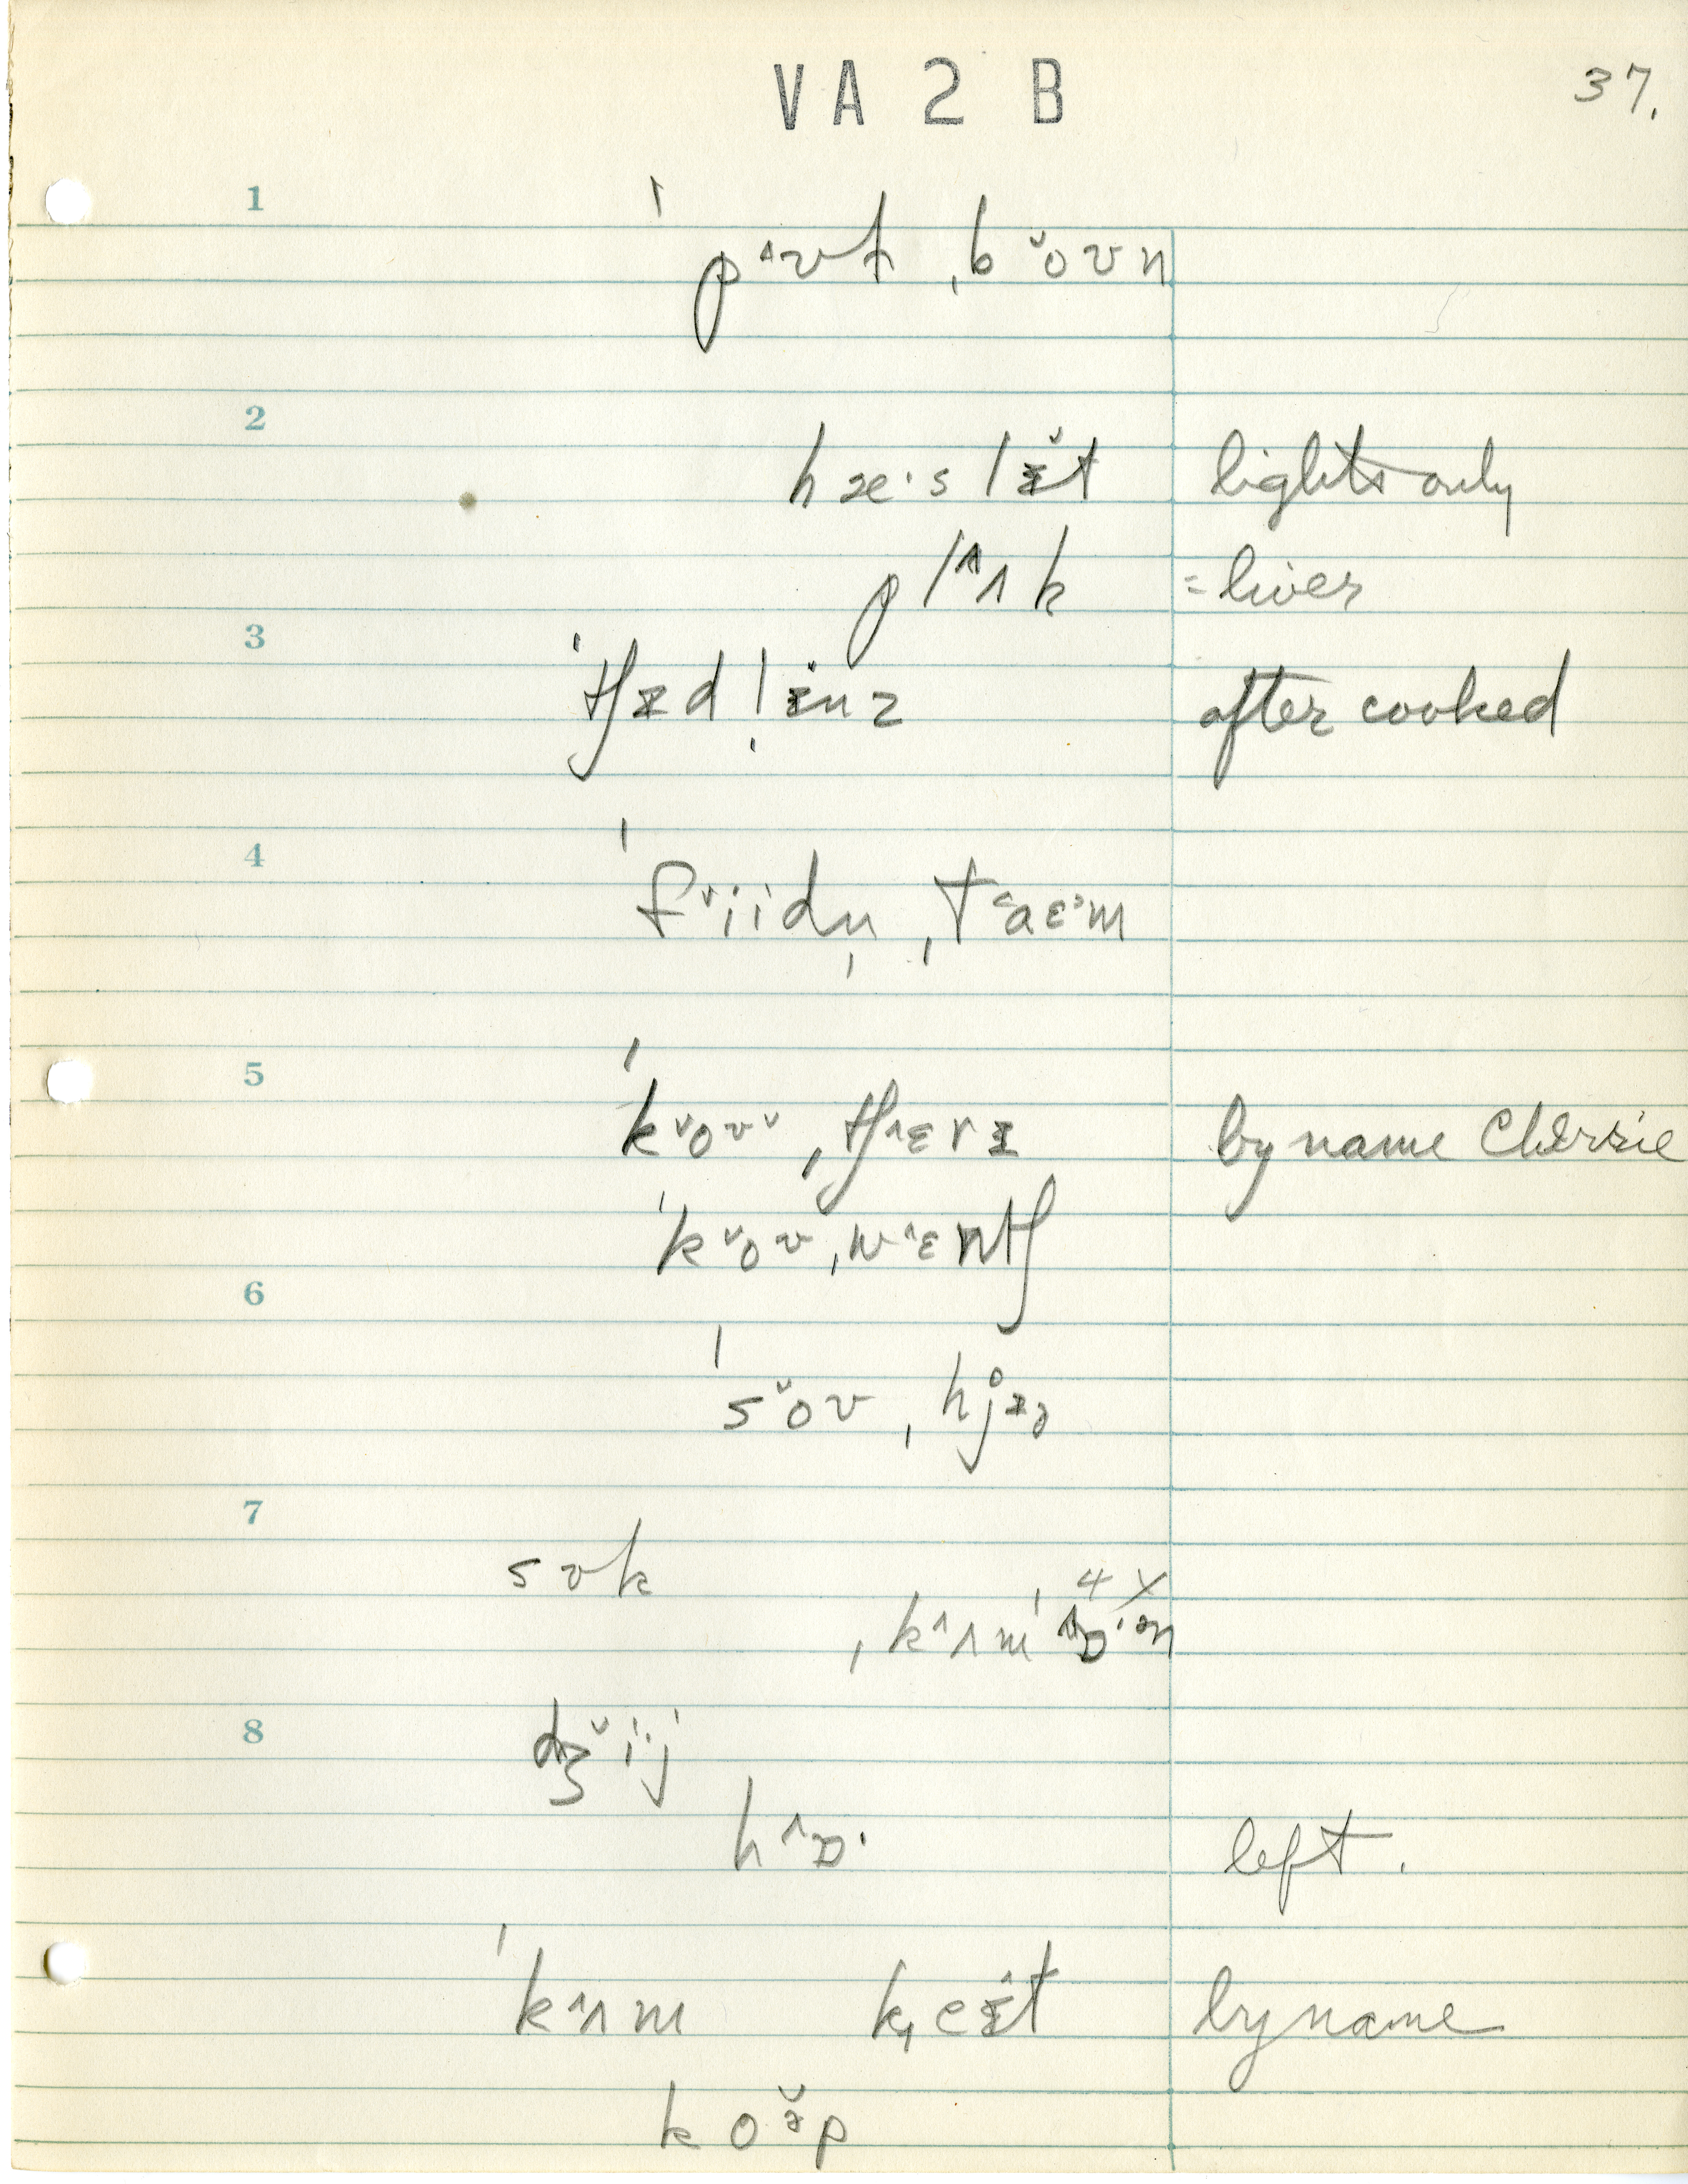 VA2B 37.
1
ˈpʌʊt ˌbo̬ʊn
2
hæ·slɪ̬t lights only
plʌ̂k = liver
3
ˈtʃɪdl̩ɪnz after cooked
4
ˈfᵛiidn̩ ˌtaɛm
5
ˈkᵛoʊᵛ ˌtʃ^ɛrɪ by name Cherrie
ˈkᵛoʊ ˌw^ɛntʃ
6
ˈso̬ʊ ˌhjɪə
7
sʊk
ˌk^ʌm ˈ^ɒ·ən 4X
8
dʒᵛi·j
h^ɒ· left.
ˈk^ʌm keɪt by name
koəp